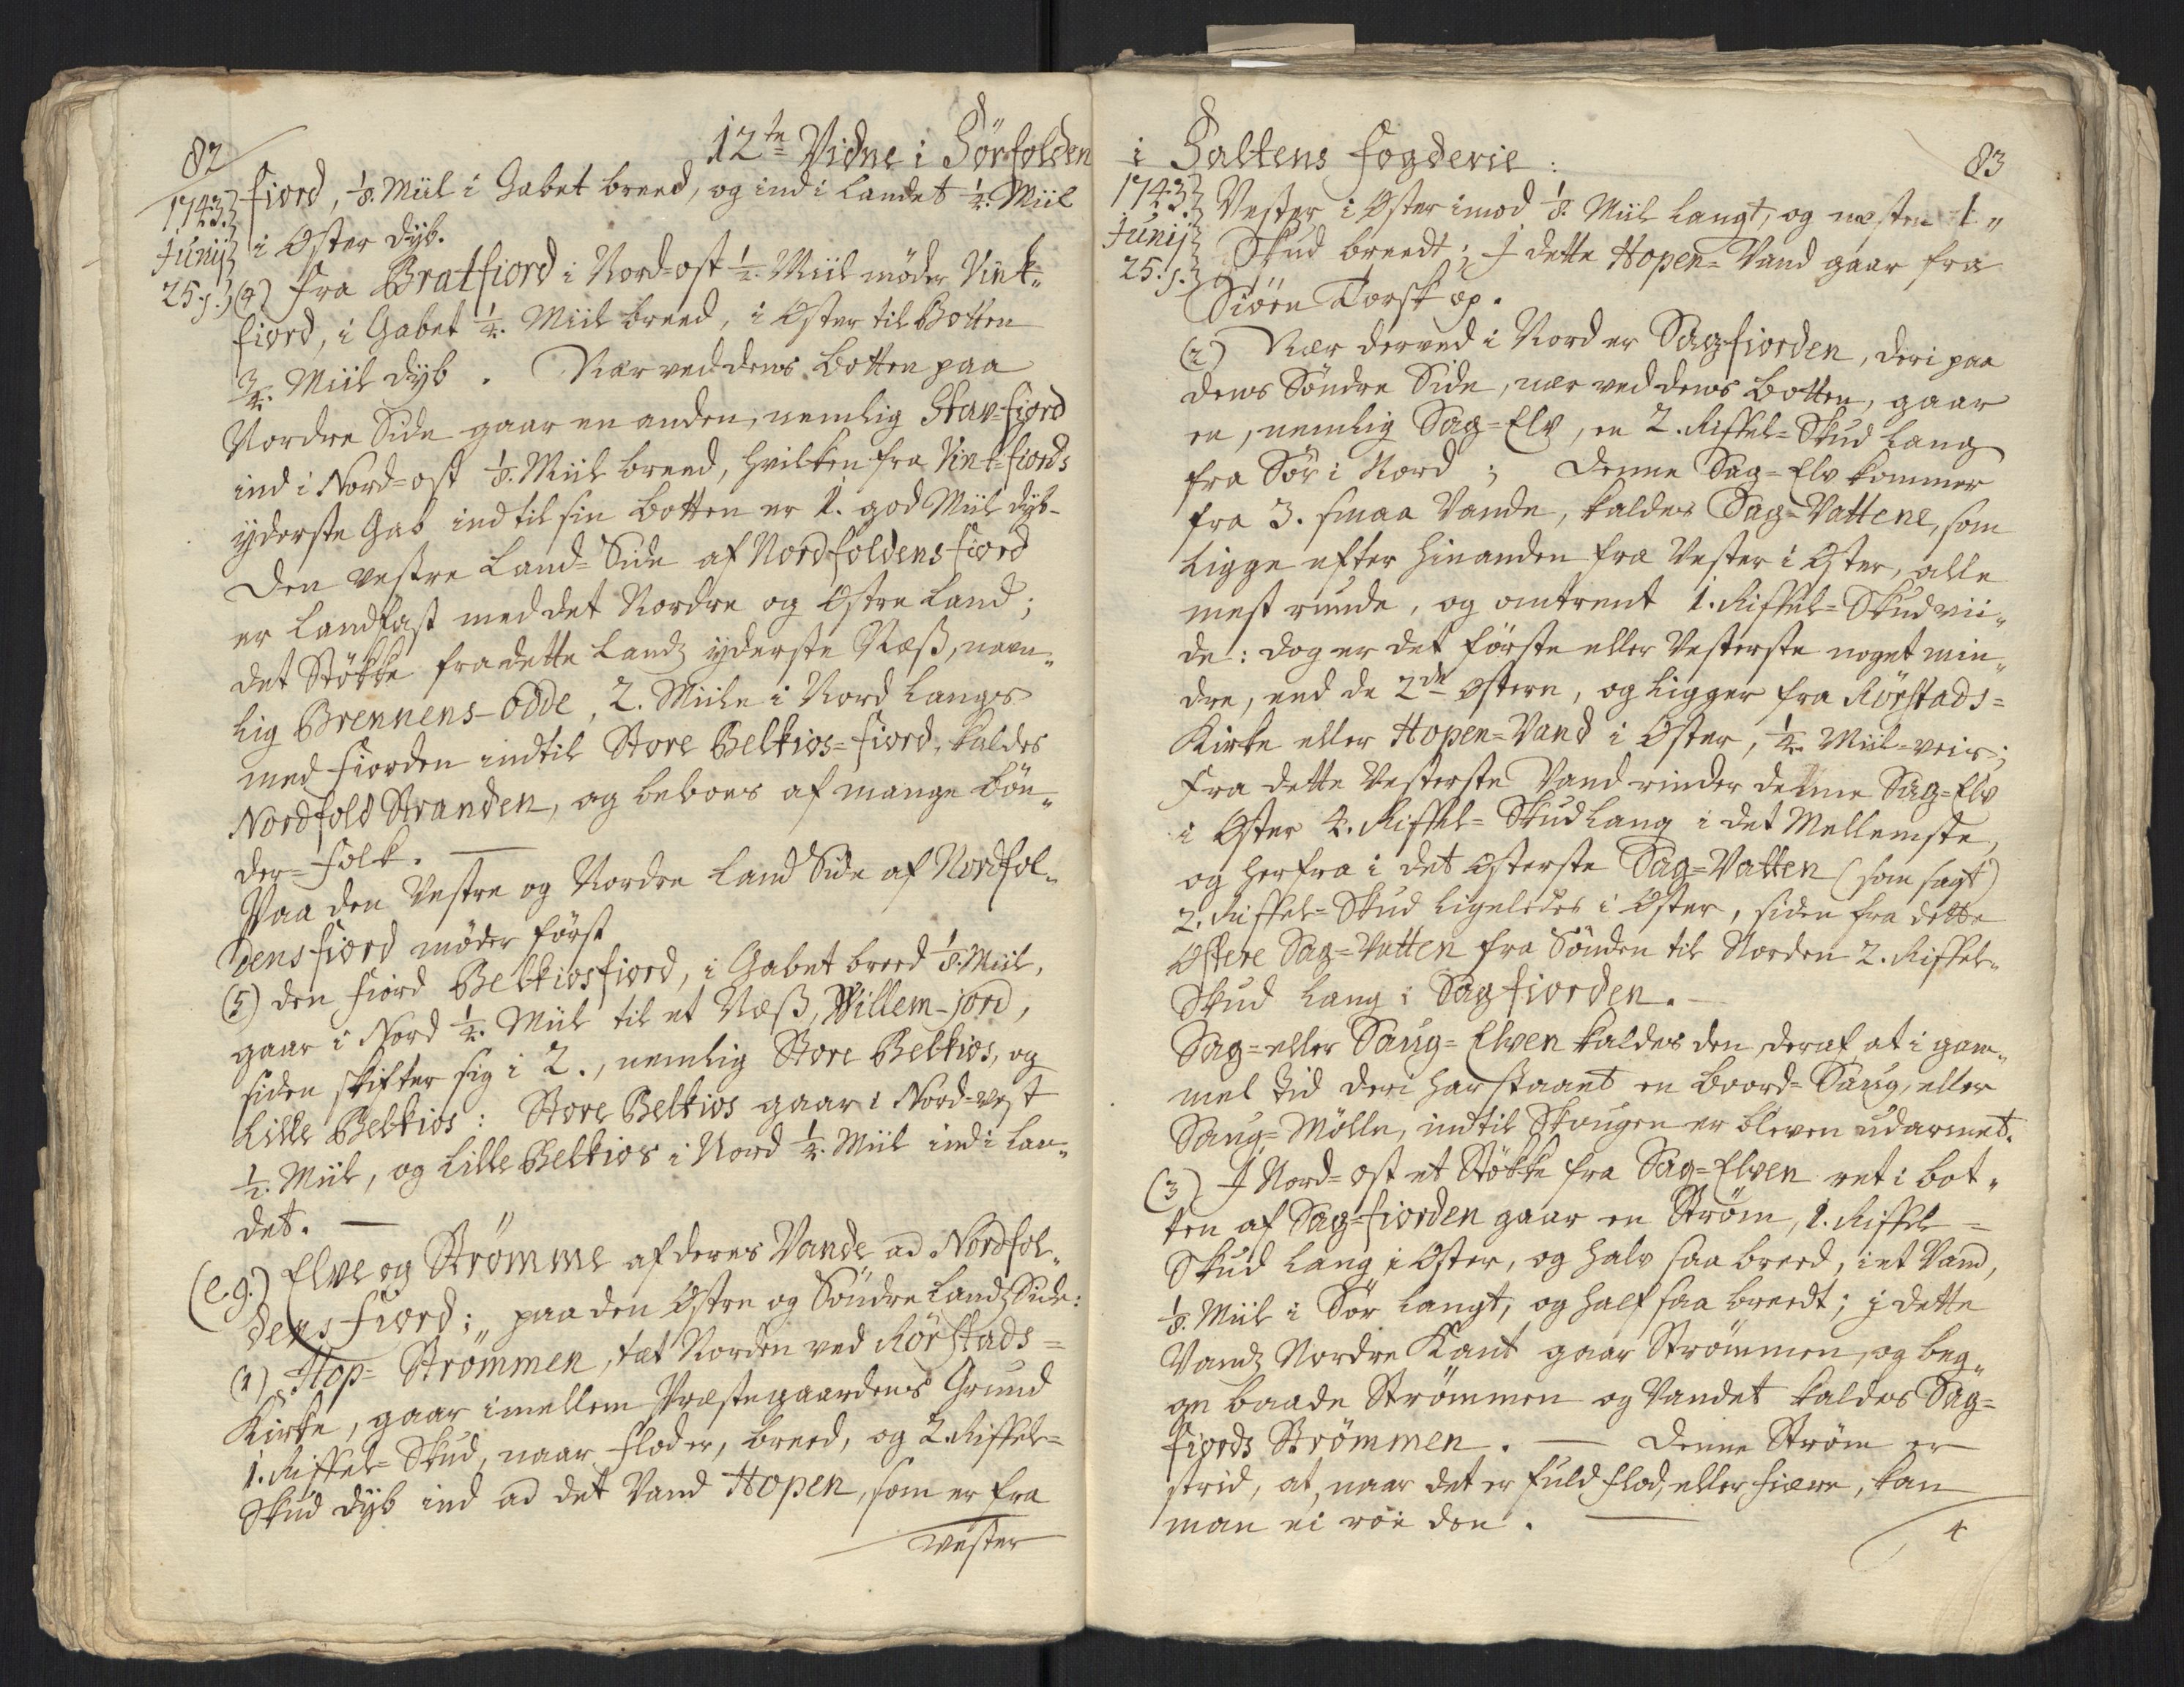 82
12te Vidne i Sörfolden
1743.
Junij
25. s.
Fiord, 1/8. Miil i Gabet breed, og ind i Landet 1/4. Miil
i Öster dÿb.
(4) Fra Bratfiord i Nord=ost 1/2. Miil möder Vink=
fiord, i Gabet 1/4. Miil breed, i Öster til Botten
3/4. Miil dÿb. Nær ved dens Botten paa
Nordre Side gaar en anden, nemlig Stav=fiord
ind i Nord=ost 1/8. Miil breed, hvilken fra Vink=fiords
ÿderste Gab ind til sin Botten er 1. god Miil dÿb.
Den vestre Land=Side af Nordfoldens fiord
er Landfast med det Nordre og Östre Land;
det Stökke fra dette Landz ÿderste Næß, nem„
lig Brennens-Odde, 2. Miile i Nord langs
med Fiorden ind til Store Belkios=Fiord, kaldes
Nordfold Stranden, og beboes af mange Bön„
der=Folk. —
Paa den Vestre og Nordre Land Side af Nordfol„
dens fiord möder först
(5) den Fiord Belkiosfiord, i Gabet breed 1/8. Miil,
gaar i Nord 1/4. Miil til et Næß, Willem-jord,
siden skifter sig i 2., nemlig Store Belkios, og
Lille Belkios: Store Belkios gaar i Nord=vest
1/2. Miil, og Lille Belkios i Nord 1/4. Miil ind i Lan„
det. —
(e. g.) Elve og Strömme af deres Vande ad Nordfol„
dens Fiord; paa den Östre og Söndre Landz Side:
(1) Hop=Strömmen, tæt Norden ved Rörstads=
Kirke, gaar imellem Præstegaardens Grund
1. Riffel=Skud, naar Flod er, breed, og 2. Riffel=
Skud dÿb ind ad det Vand Hopen, som er fra
Vester
i Saltens Fogderie:
83
1743.
Junij
25. s.
Vester i Öster imod 1/8. Miil langt, og næsten 1„
Skud breedt; I dette Hopen=Vand gaar fra
Siöen Torsk op.
(2) Nær derved i Nord er Sagfiorden, deri paa
dens Söndre Side, nær ved dens Botten, gaar
en, nemlig Sag=Elv, en 2. Riffel=Skud lang
fra Sör i Nord; Denne Sag=Elv kommer
fra 3. smaa Vande, kaldes Sag=Vattene, som
ligge efter hinanden fra Vester i Öster, alle
mest runde, og omtrent 1. Riffel=Skud vii„
de: dog er det förste eller Vesterste noget min„
dre, end de 2de Östere, og ligger fra Rörstads=
Kirke eller Hopen=Vand i Öster, 1/4. Miil=veis;
Fra dette Vesterste Vand rinder denne Sag=Elv
i Öster 4. Riffel=Skud lang i det Mellemste,
og herfra i det Österste Sag=Vatten (som sagt)
2. Riffel=Skud ligeledes i Öster, siden fra dette
Östere Sag=Vatten fra Sönden til Norden 2. Riffel„
Skud lang i Sagfiorden. —
Sag=eller Saug=Elven kaldes den, deraf at i gam„
mel Tid deri har staaet en Boord=Saug, eller
Saug=Mölle, indtil Skougen er bleven udarmet.
(3) I Nord=ost et Stökke fra Sag=Elven ret i Bot„
ten af Sag=fiorden gaar en Ström, 1. Riffel=
Skud lang i Öster, og halv saa breed, i et Vand,
1/8. Miil i Sör langt, og half saa breedt; i dette
Vandz Nordre Kant gaar Strömmen, og beg„
ge baade Strömmen og Vandet kaldes Sag=
fiords Strömmen. — Denne Ström er
strid, at, naar det er fuld Flod, eller Fiære, kan
man ei roe den. —
4